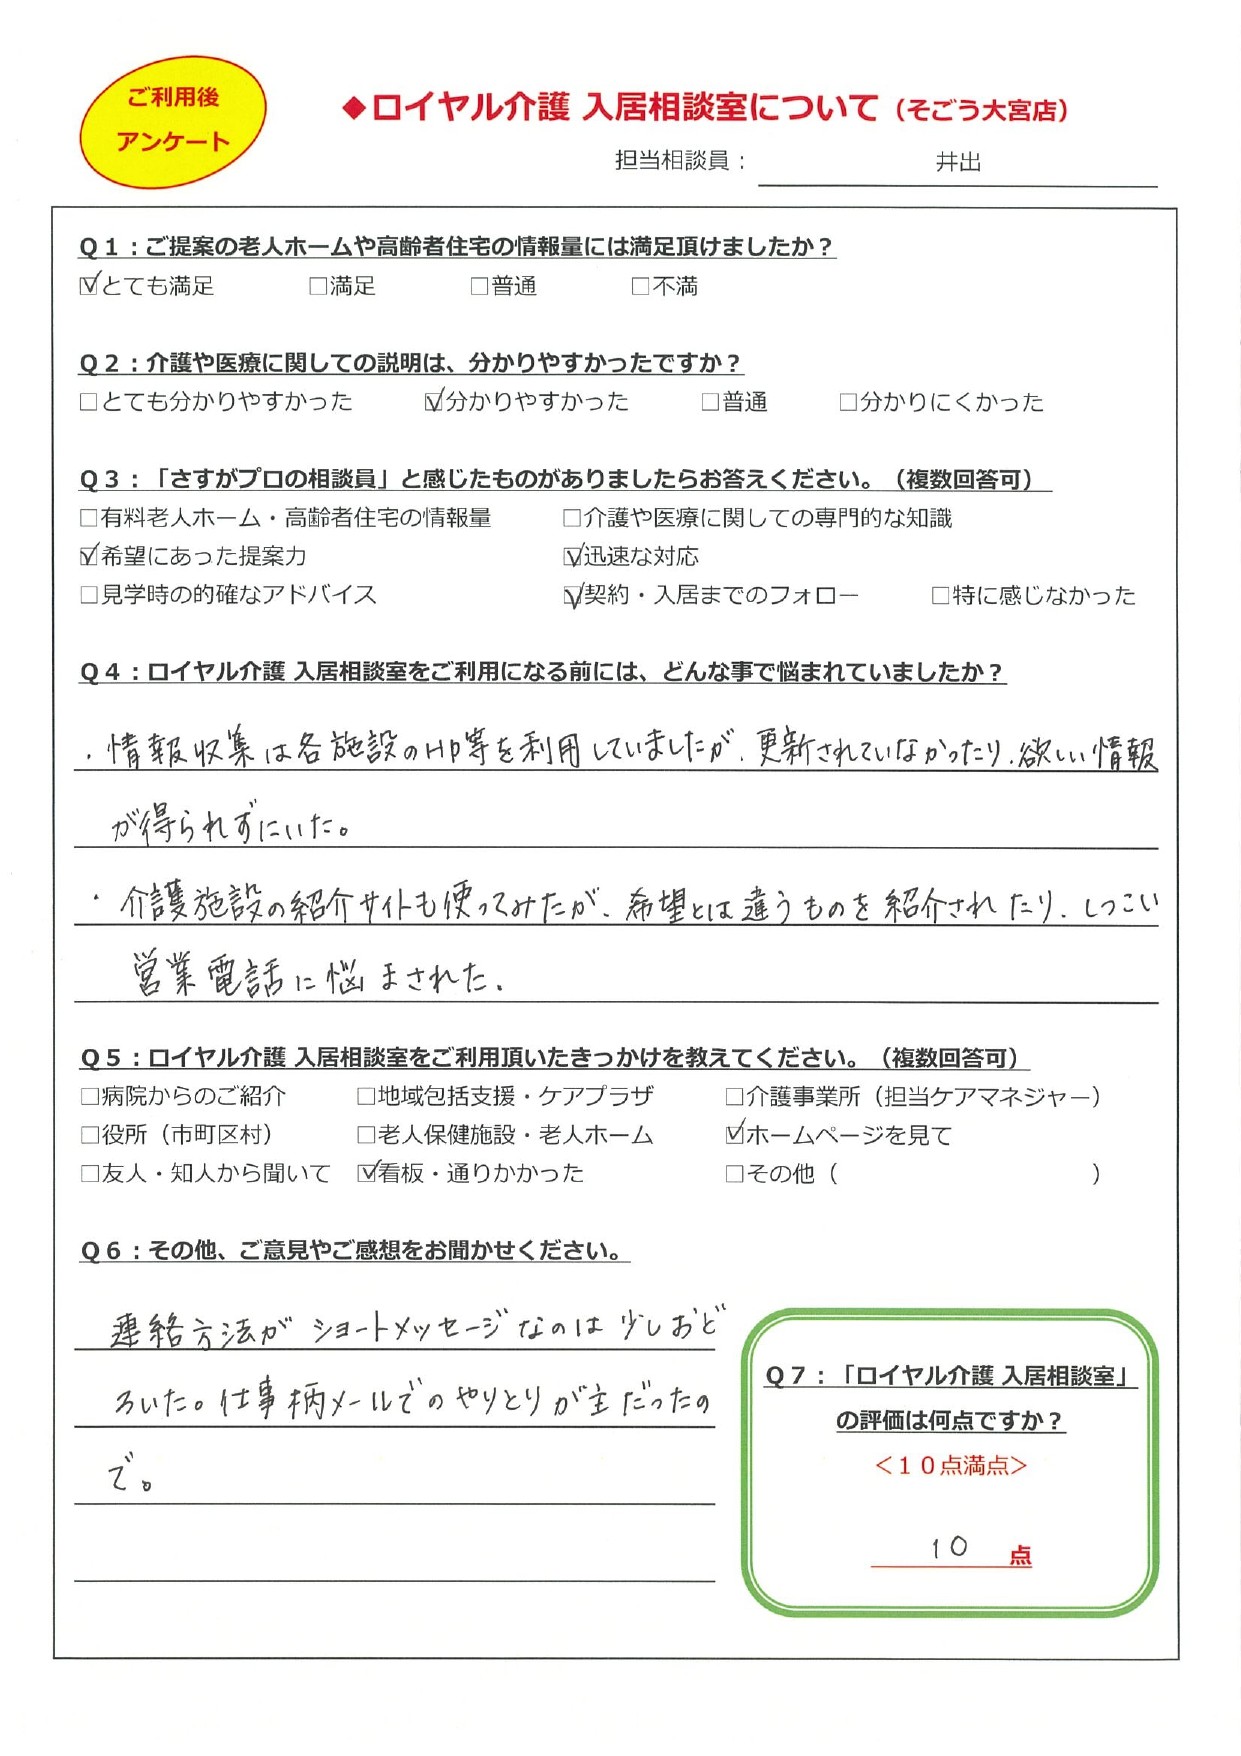 ご利用後
アンケート
◆ロイヤル介護 入居相談室について（そごう大宮店）
担当相談員： 井出
Q1：ご提案の老人ホームや高齢者住宅の情報量には満足頂けましたか？
☑とても満足 □満足 □普通 □不満
Q2：介護や医療に関しての説明は、分かりやすかったですか？
□とても分かりやすかった ☑分かりやすかった □普通 □分かりにくかった
Q3：「さすがプロの相談員」と感じたものがありましたらお答えください。（複数回答可）
□有料老人ホーム・高齢者住宅の情報量 □介護や医療に関しての専門的な知識
☑希望にあった提案力 ☑迅速な対応
□見学時の的確なアドバイス ☑契約・入居までのフォロー □特に感じなかった
Q4：ロイヤル介護 入居相談室をご利用になる前には、どんな事で悩まれていましたか？
・情報収集は各施設のHP等を利用していましたが、更新されていなかったり、欲しい情報
が得られずにいた。
・介護施設の紹介サイトも使ってみたが、希望とは違うものを紹介されたり、しつこい
営業電話に悩まされた、
Q5：ロイヤル介護 入居相談室をご利用頂いたきっかけを教えてください。（複数回答可）
□病院からのご紹介 □地域包括支援・ケアプラザ □介護事業所（担当ケアマネジャー）
□役所（市町区村） □老人保健施設・老人ホーム ☑ホームページを見て
□友人・知人から聞いて ☑看板・通りかかった □その他（ ）
Q6：その他、ご意見やご感想をお聞かせください。
連絡方法がショートメッセージなのは少しおど
ろいた。仕事柄メールでのやりとりが主だったの
で。
Q7：「ロイヤル介護 入居相談室」
の評価は何点ですか？
＜10点満点＞
10 点